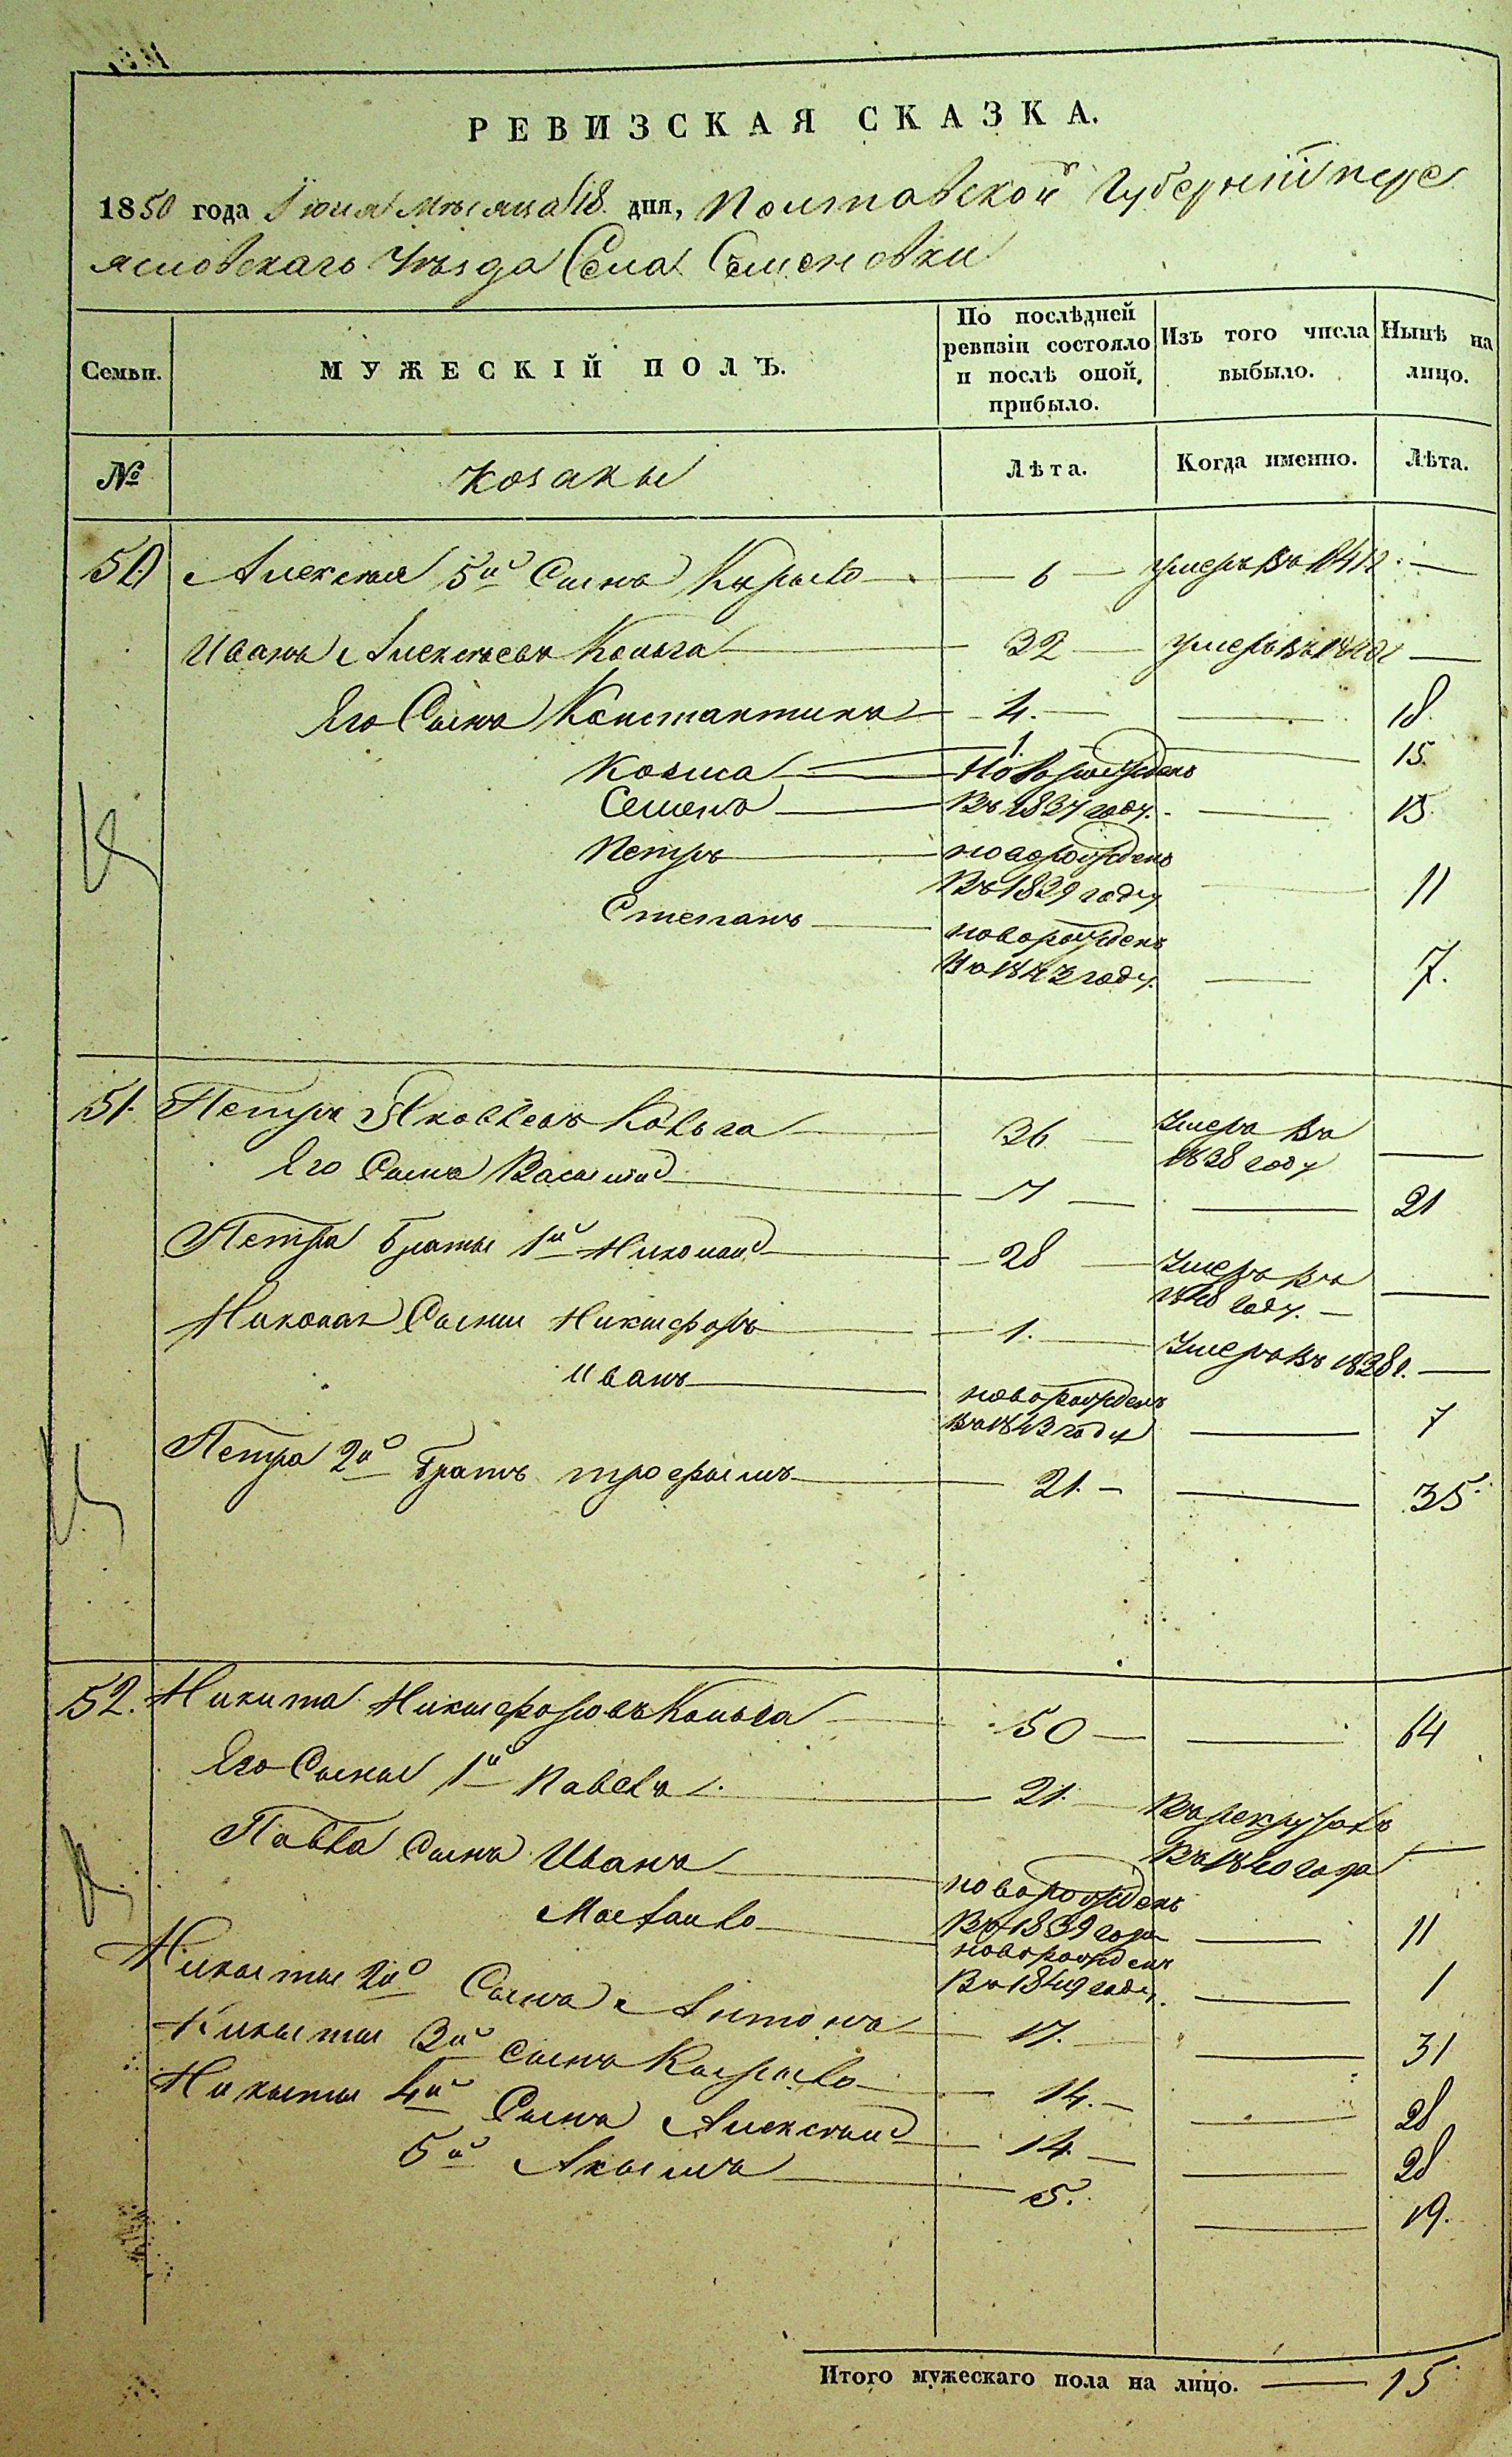 РЕВИЗСКАЯ СКАЗКА.
1850 года Іюня Месяца 18 дня, Полтавской Губерніи пере
яславскаго Уѣзда Села Семеновки
Семьи.
МУЖЕСКІЙ ПОЛЪ.
По послѣдней ревизіи состояло и послѣ оной, прибыло.
Изъ того числа выбыло.
Нынѣ на лицо.
№
Козаки
Лѣта.
Когда именно.
Лѣта.
50 Алексѣя 5й Сынъ Кирило 6 умеръ въ
Иванъ Алексѣевъ Кольга 32 умеръ въ
Его Сынъ Константинъ 4. 18
Козма 1. 15.
Семенъ Новорожденъ Въ 1837 году. 13
Петръ новорожденъ Въ 1839 году 11
Степанъ новорожденъ Въ 1843 году. 7.
51. Петръ Яковлевъ Кольга 36 Умеръ въ 1838 году
Его Сынъ Василій 7 21
Петра Браты 1й Николай 28 Умеръ въ 1848 году.
Николая Сыны Никифоръ 1. Умеръ въ 1838 г.
Иванъ новорожденъ въ 1843 году 7
Петра 2й Братъ трофымъ 21. 35.
52. Никита Никифоровъ Кольга 50 64
Его Сыны 1й Павелъ 21. Въ рекруты Въ 1840 года
Павла Сынъ Иванъ новорожденъ Въ 1839 года 11
новорожденъ Въ 1849 году. 1
Никыты 2й Сынъ Антонъ 17. 31
Никыты 3й Сынъ Кырыло 14. 28
Никыты 4й Сынъ Алексѣй 14. 28
5й Акымъ 5. 19.
Итого мужескаго пола на лицо. 15